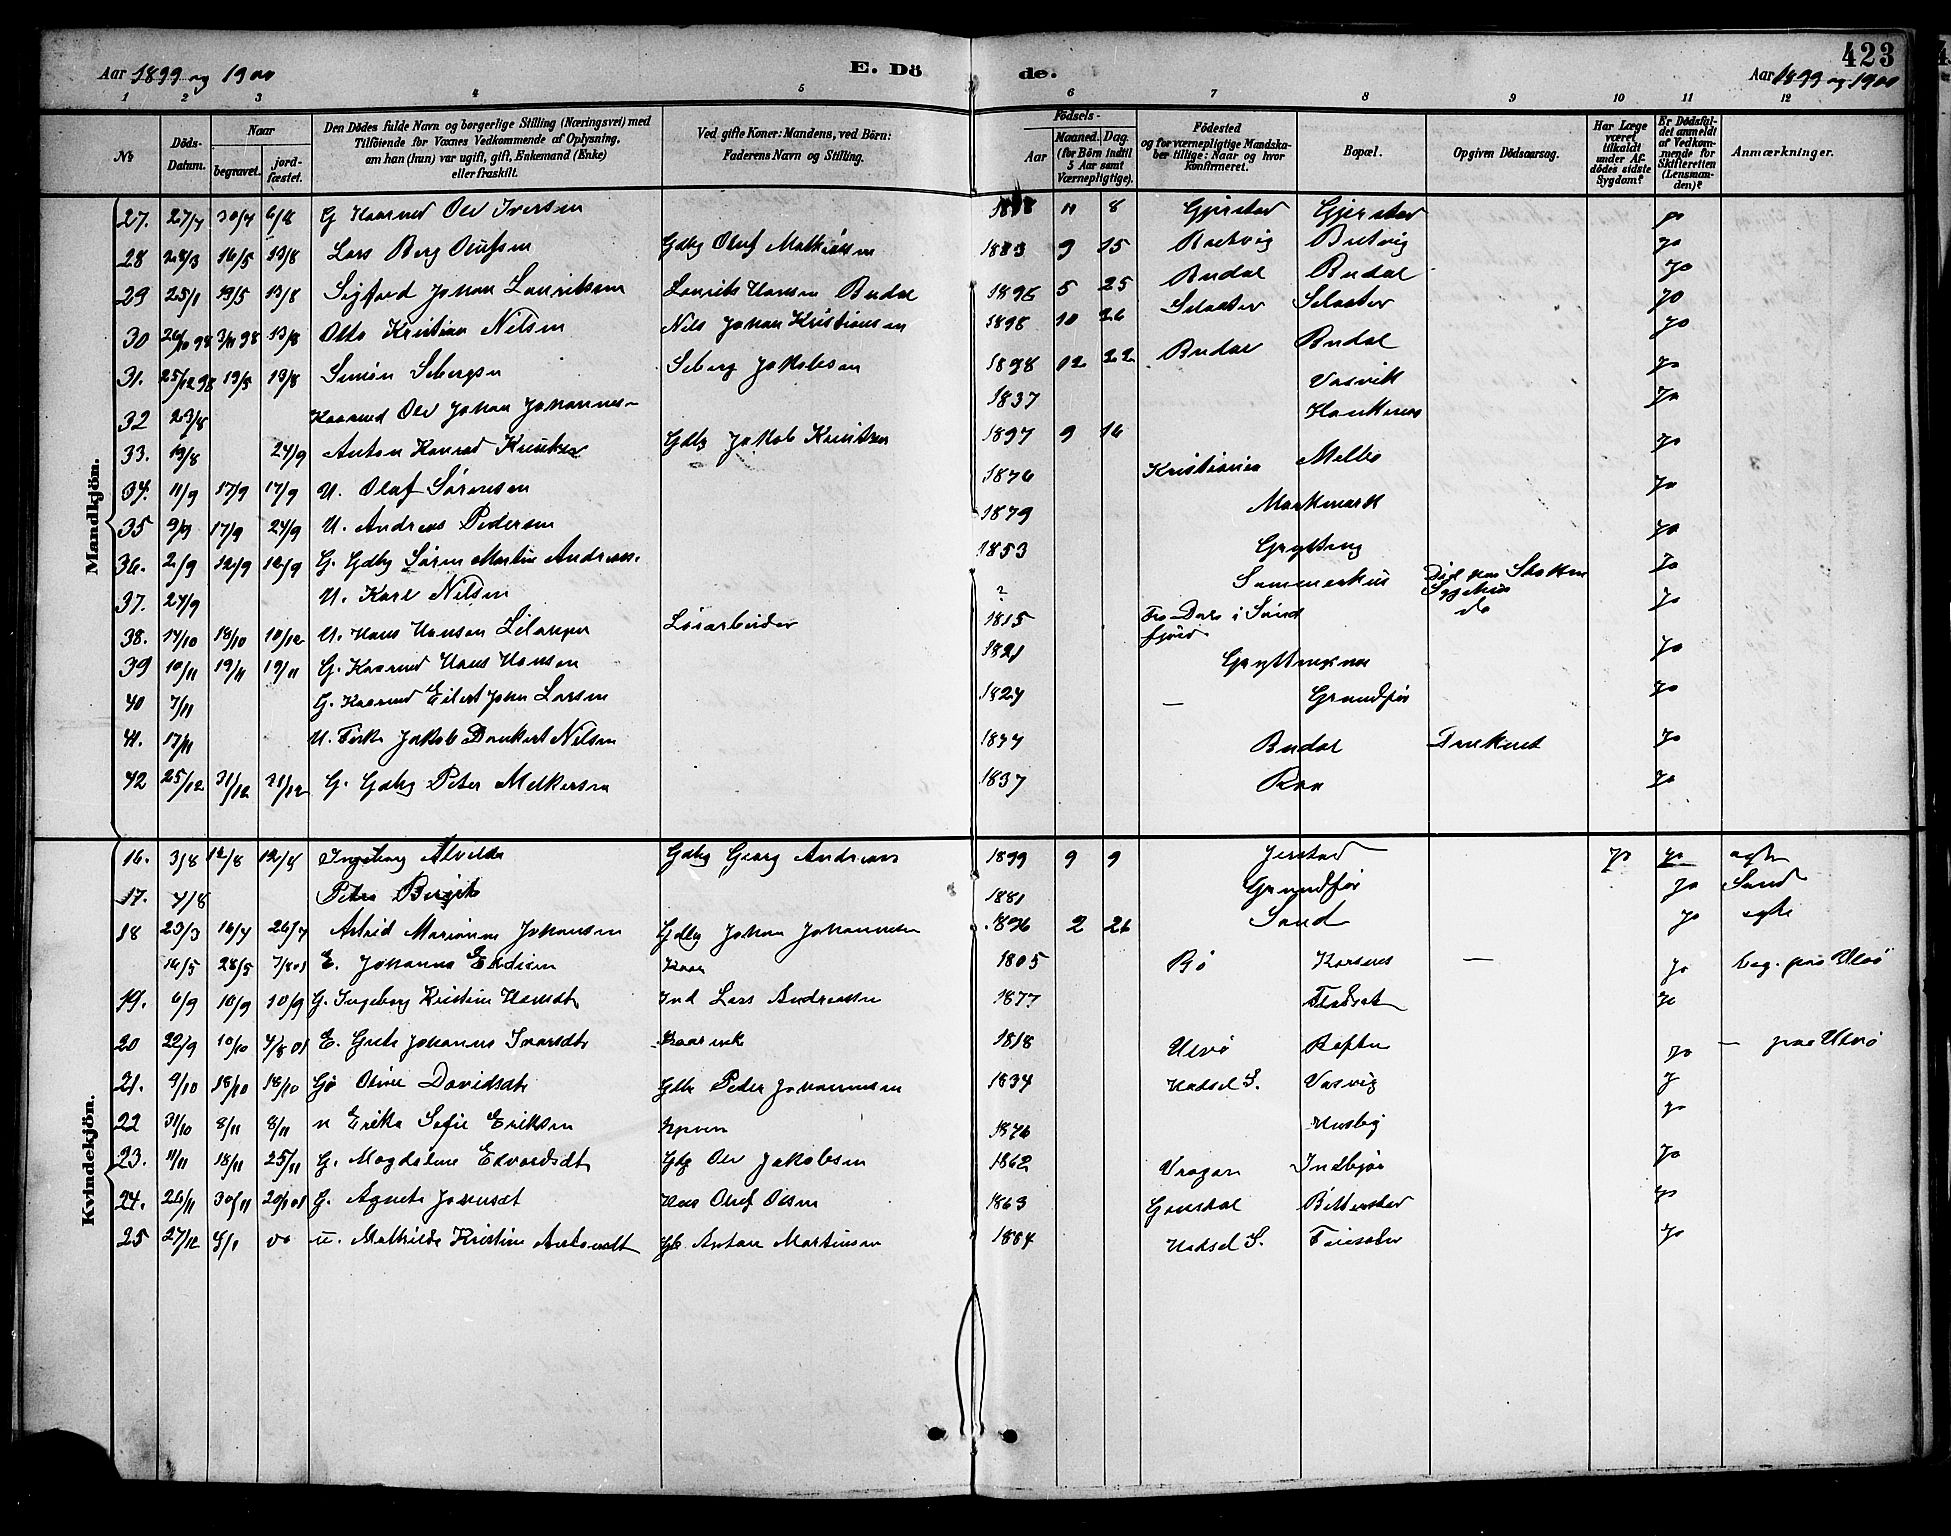 423
Aar 1899 og 1900 E. Döde. Aar 1899 og 1900
1 2 3 4 5 6 7 8 9 10 11 12
No
Döds-Datum.
Naar
begravet.
jordfæstet.
Den Dödes fulde Navn og borgerlige Stilling (Næringsvei) med
Tilföiende for Voxnes Vedkommende af Oplysning,
om han (hun) var ugift, gift, Enkemand (Enke)
eller fraskilt.
Ved gifte Koner: Mandens, ved Börn:
Faderens Navn og Stilling.
Födsels-
Aar
Maaned. Dag.
(for Börn indtil
5 Aar samt
Værnepligtige).
Födested
og for værnepligtige Mandska-
ber tillige: Naar og hvor
konfirmeret.
Bopæl.
Opgiven Dödsaarsag.
Har Læge
været
tilkaldt
under Af-
dödes sidste
Sygdom?
Er Dödsfal-
det anmeldt
af Vedkom-
mende for
Skifteretten
(Lensman-
den)?
Anmærkninger.
Mandkjön.
27. 27/7 30/7 6/8 G Kaarmd Ole Iversen 11 8 Gjerstad Gjerstad jo
28 28/3 16/5 13/8 Lars Berg Olufsen Gdbg Oluf Mathisen 1883 9 15 Bretvig Bretvig jo
29 25/1 19/5 13/8 Sigfred Johan Lauritsen Laurits Hansen Budal 1896 5 25 Budal Budal jo
30 26/10 98 3/11 98 13/8 Otto Kristian Nilsen Nils Johan Kristiansen 1898 10 26 Slaater Slaater jo
31. 25/12 98 19/5 13/8 Simon Sebergsen Seberg Jakobsen 1898 12 22 Budal Budal jo
32 23/8 Kaarmd Ole Johan Johannes- 1837 Vasvik jo
33. 19/8 24/9 Anton Konrad Knutsen Gdbg Jakob Knutsen 1897 9 16 Haukenes jo
34. 11/9 17/9 17/9 U. Olaf Sørensen 1876 Kristiania Melbo jo
35 9/9 17/9 24/9 U. Andreas Pedersen 1879 Markmark jo
36. 2/9 12/9 12/9 G. Gdbg Søren Martin Andreas. 1853 Grytting jo
37. 27/9 U. Karl Nilsen ? Sommerhus Død paa Stokm Sygehus jo
38. 14/10 18/10 10/12 U. Hans Hansen Løsarbeider 1815 Fra i Sønd fjord do jo
39 10/11 19/11 19/11 G. Kaarmd Hans Hansen 1821 jo
40 7/11 G. Kaarmd Eilert Johan Larsen 1827 — Grundfør jo
41. 17/11 U. Fisker Jakob Dankert Nilsen 1877 Budal Druknet jo
42 25/12 31/12 31/12 G. Gdbg Peter Melkersen 1837 Raa jo
Kvindekjön.
16. 3/8 12/8 12/8 Ingeborg Alvilde Gdbg Georg Andreas 1899 9 9 Jerstad jo jo ægte
17. 4/8 Petra Bergite 1881 Grundfør jo Sand
18 23/3 16/4 26/4 Astrid Marianne Johansen Gdbg Johan Johannesen 1896 2 26 Sand jo ægte
16/5 28/5 7/8 01 E. Johanna Kaar 1805 Bø Korsnes — jo beg. paa Ulvø
19. 6/9 10/9 10/9 G. Ingeborg Kristine Hansdt Ind Lars Andreassen 1877 Flesnes jo
20 22/9 10/10 4/8 01 E. Grete Johanna Ivarsdt Kaarenke 1818 Ulvø Raften jo — paa Ulvø
21. 9/10 18/10 18/10 G Oline Davidsdt Gdb Peder Johannesen 1834 Hadsel S. Vasvig jo
22 31/10 8/11 8/11 u Erika Sofie Eriksen 1876 Husby jo
23. 11/11 18/11 25/11 G. Magdalene Edvardsdt Gbg Ole Jakobsen 1862 Vragan Indbjør jo
24. 26/11 30/11 20/1 01 G. Agnete Jonasdt Hus Oluf Olsen 1863 Gausdal Bitterstad jo
25 27/12 4/1 do u. Mathilde Kristine Antonsdt Gb Anton Martinsen 1884 Hadsel S. Faiesæter jo